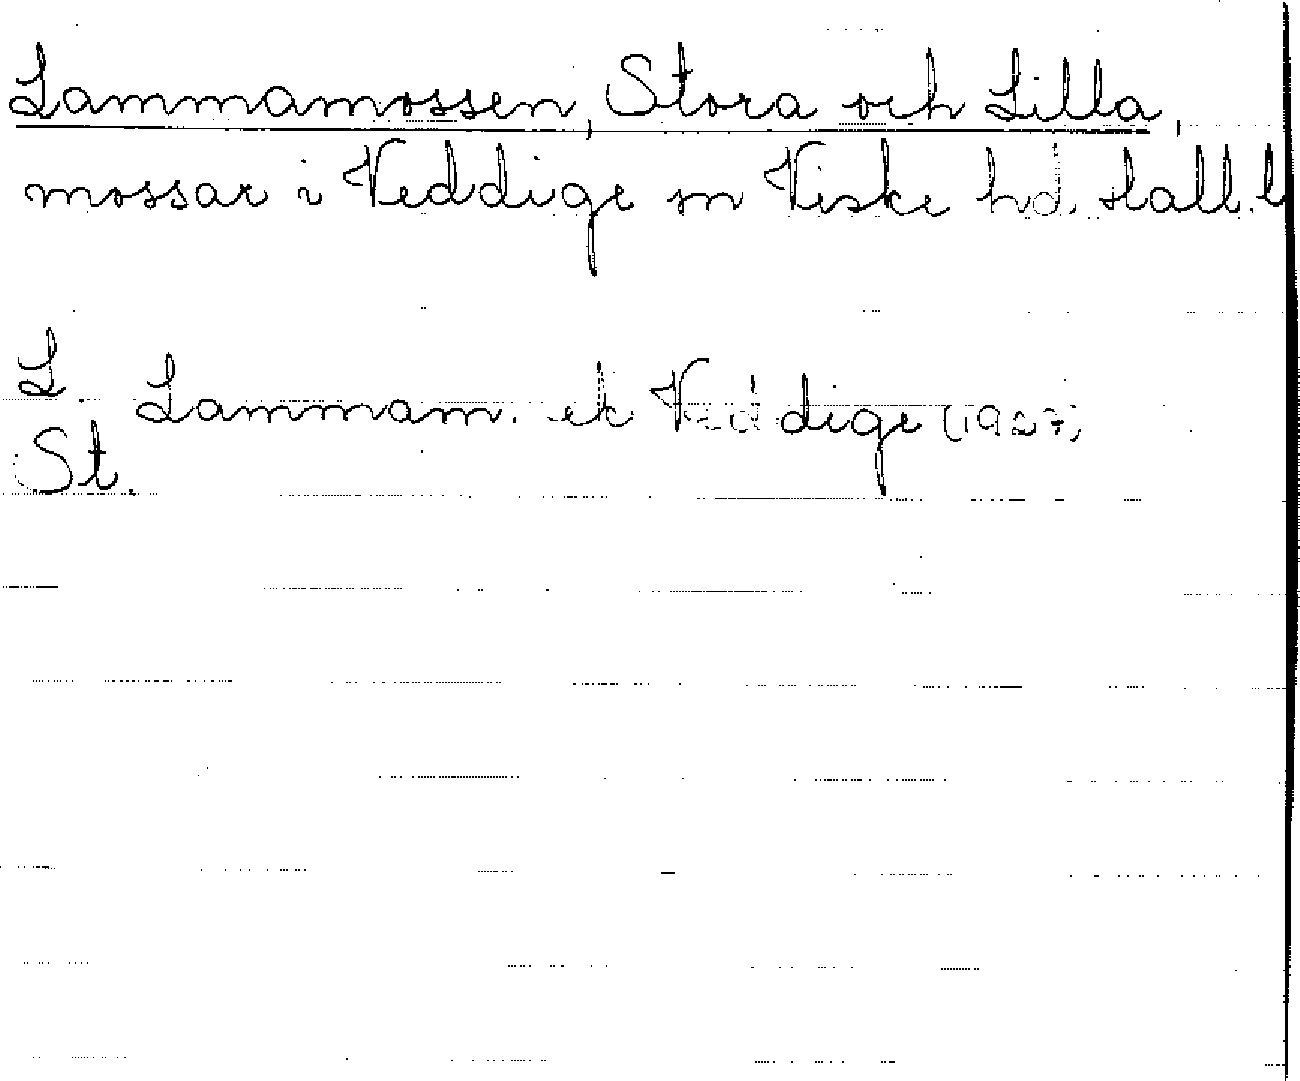 Lammamossen, Stora och Lilla,
mossar i Veddige sn Viske hd. Hall. l
L.
Lammam. ek Veddige (1927)
St.